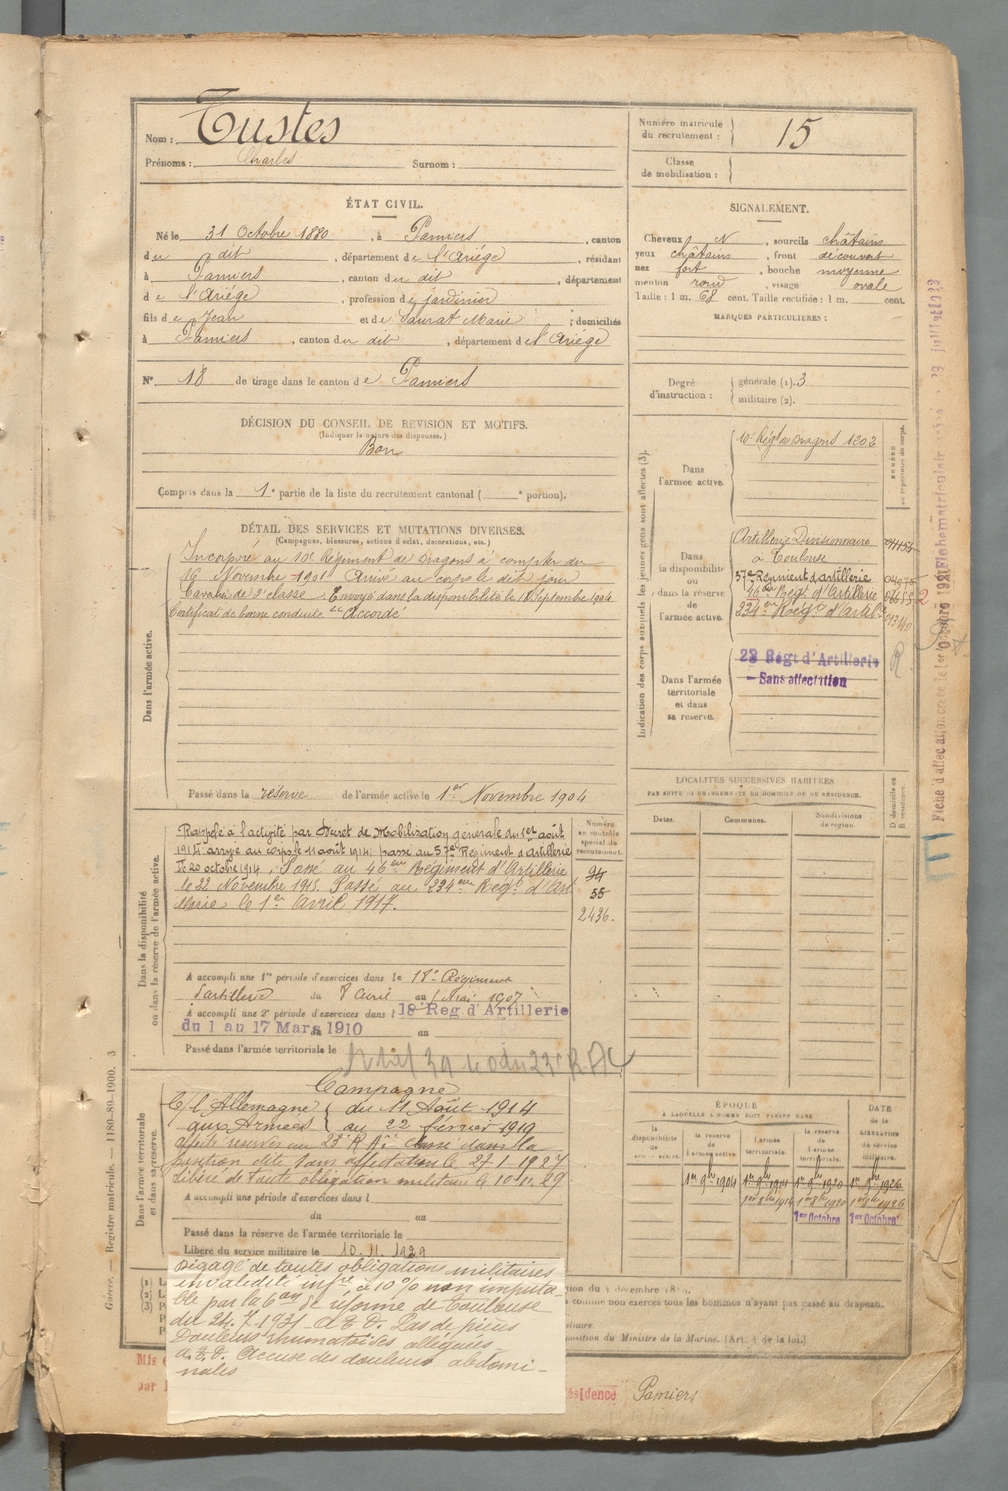 Nom : Tustes
Prénoms : Charles Surnom :
Numéro matricule du recrutement : 15
Classe de mobilisation :
ÉTAT CIVIL.
Né le 31 Octobre 1880, à Pamiers, canton
du dit, département de l'Ariége, résidant
à Pamiers, canton du dit, département
de l'Ariége, profession de jardinier
fils de Jean et de Saurat Marie ; domiciliés
à Pamiers, canton du dit, département de l'Ariége
N° 18 de tirage dans le canton de Pamiers
SIGNALEMENT.
Cheveux N, sourcils châtains
yeux châtains, front découvert
nez fort, bouche moyenne
menton rond, visage ovale
Taille : 1 m. 68 cent. Taille rectifiée : 1 m. cent.
MARQUES PARTICULIÈRES :
Degré d'instruction : générale (1). 3
militaire (2).
DÉCISION DU CONSEIL DE REVISION ET MOTIFS.
(Indiquer la nature des dispenses.)
Bon
Compris dans la 1e partie de la liste du recrutement cantonal ( e portion).
DÉTAIL DES SERVICES ET MUTATIONS DIVERSES.
(Campagnes, blessures, actions d'éclat, décorations, etc.)
Dans l'armée active.
Incorporé au 10e Régiment de Dragons à compter du
16 Novembre 1901 Arrivé au corps le dit jour
Cavalier de 2e classe. Envoyé dans la disponibilité le 18 Septembre 1904
Certificat de bonne conduite Accordé
Passé dans la réserve de l'armée active le 1er Novembre 1904
Indication des corps auxquels les jeunes gens sont affectés (3).
Dans l'armée active.
10e Rég. Dragons 1203
NUMÉRO au répertoire du corps.
Dans la disponibilité ou dans la réserve de l'armée active.
Artillerie Divisionnaire
à Toulouse
57e Régiment d'artillerie
46em Régt d'Artillerie
234em Régt d'Artil
Dans l'armée territoriale et dans sa réserve.
23 Régt d'Artillerie
- Sans affectation
R
LOCALITÉS SUCCESSIVES HABITÉES
PAR SUITE DE CHANGEMENTS DE DOMICILE OU DE RÉSIDENCE.
Dates. Communes. Subdivisions de région. D domicile ou R résidence.
Dans la disponibilité ou dans la réserve de l'armée active.
Rappelé à l'activité par Décret de Mobilisation générale du 1er août
1914 arrivé au corps le 11 août 1914; passé au 57e Régiment d'artillerie
le 20 octobre 1914. Passé au 46em Régiment d'Artillerie
le 22 Novembre 1915. Passé au 234em Régt d'Art
illerie le 1er Avril 1917.
Numéro au contrôle spécial du recrutement.
55
2436.
A accompli une 1re période d'exercices dans le 18e Régiment
d'artillerie du 8 Avril au 1 Mai 1907
A accompli une 2e période d'exercices dans l 18e Reg d'Artillerie
du 1 au 17 Mars 1910 au
Passé dans l'armée territoriale le
Dans l'armée territoriale et dans sa réserve.
Campagne
C/ l'Allemagne { du 11 Août 1914
aux Armées { au 22 février 1919
affecté réserve au 23e R A Classé dans la
position dite sans affectation le 27-1-1927
Libéré de toute obligation militaire le 10.11.29
A accompli une période d'exercices dans l
du au
Passé dans la réserve de l'armée territoriale le
Libéré du service militaire le 10.11.1929
ÉPOQUE
À LAQUELLE L'HOMME DOIT PASSER DANS
la disponibilité de l'armée active. la réserve de l'armée active. l'armée territoriale. la réserve de l'armée territoriale. DATE de la LIBÉRATION du service militaire.
1er 9bre 1904 1er 9bre 1911 1er 9bre 1920 1er 9bre 1926
1er 8bre 1914 1er 8bre 1920 1er 8bre 1926
1er Octobre 1er Octobre
Dégagé de toutes obligations militaires
invalidité infre à 10% non imputa-
ble par la 6em de réforme de Toulouse
du 24.7.1931 A.E.D. Pas de pieds
Douleurs rhumatoïdes alléguées
A.E.D. Accuse des douleurs abdomi-
nales
comme non exercés tous les hommes n'ayant pas passé au drapeau.
position du Ministre de la Marine. (Art. 4 de la loi.)
Résidence Pamiers
Guerre. — Registre matricule. — 1180-89-1900. 3